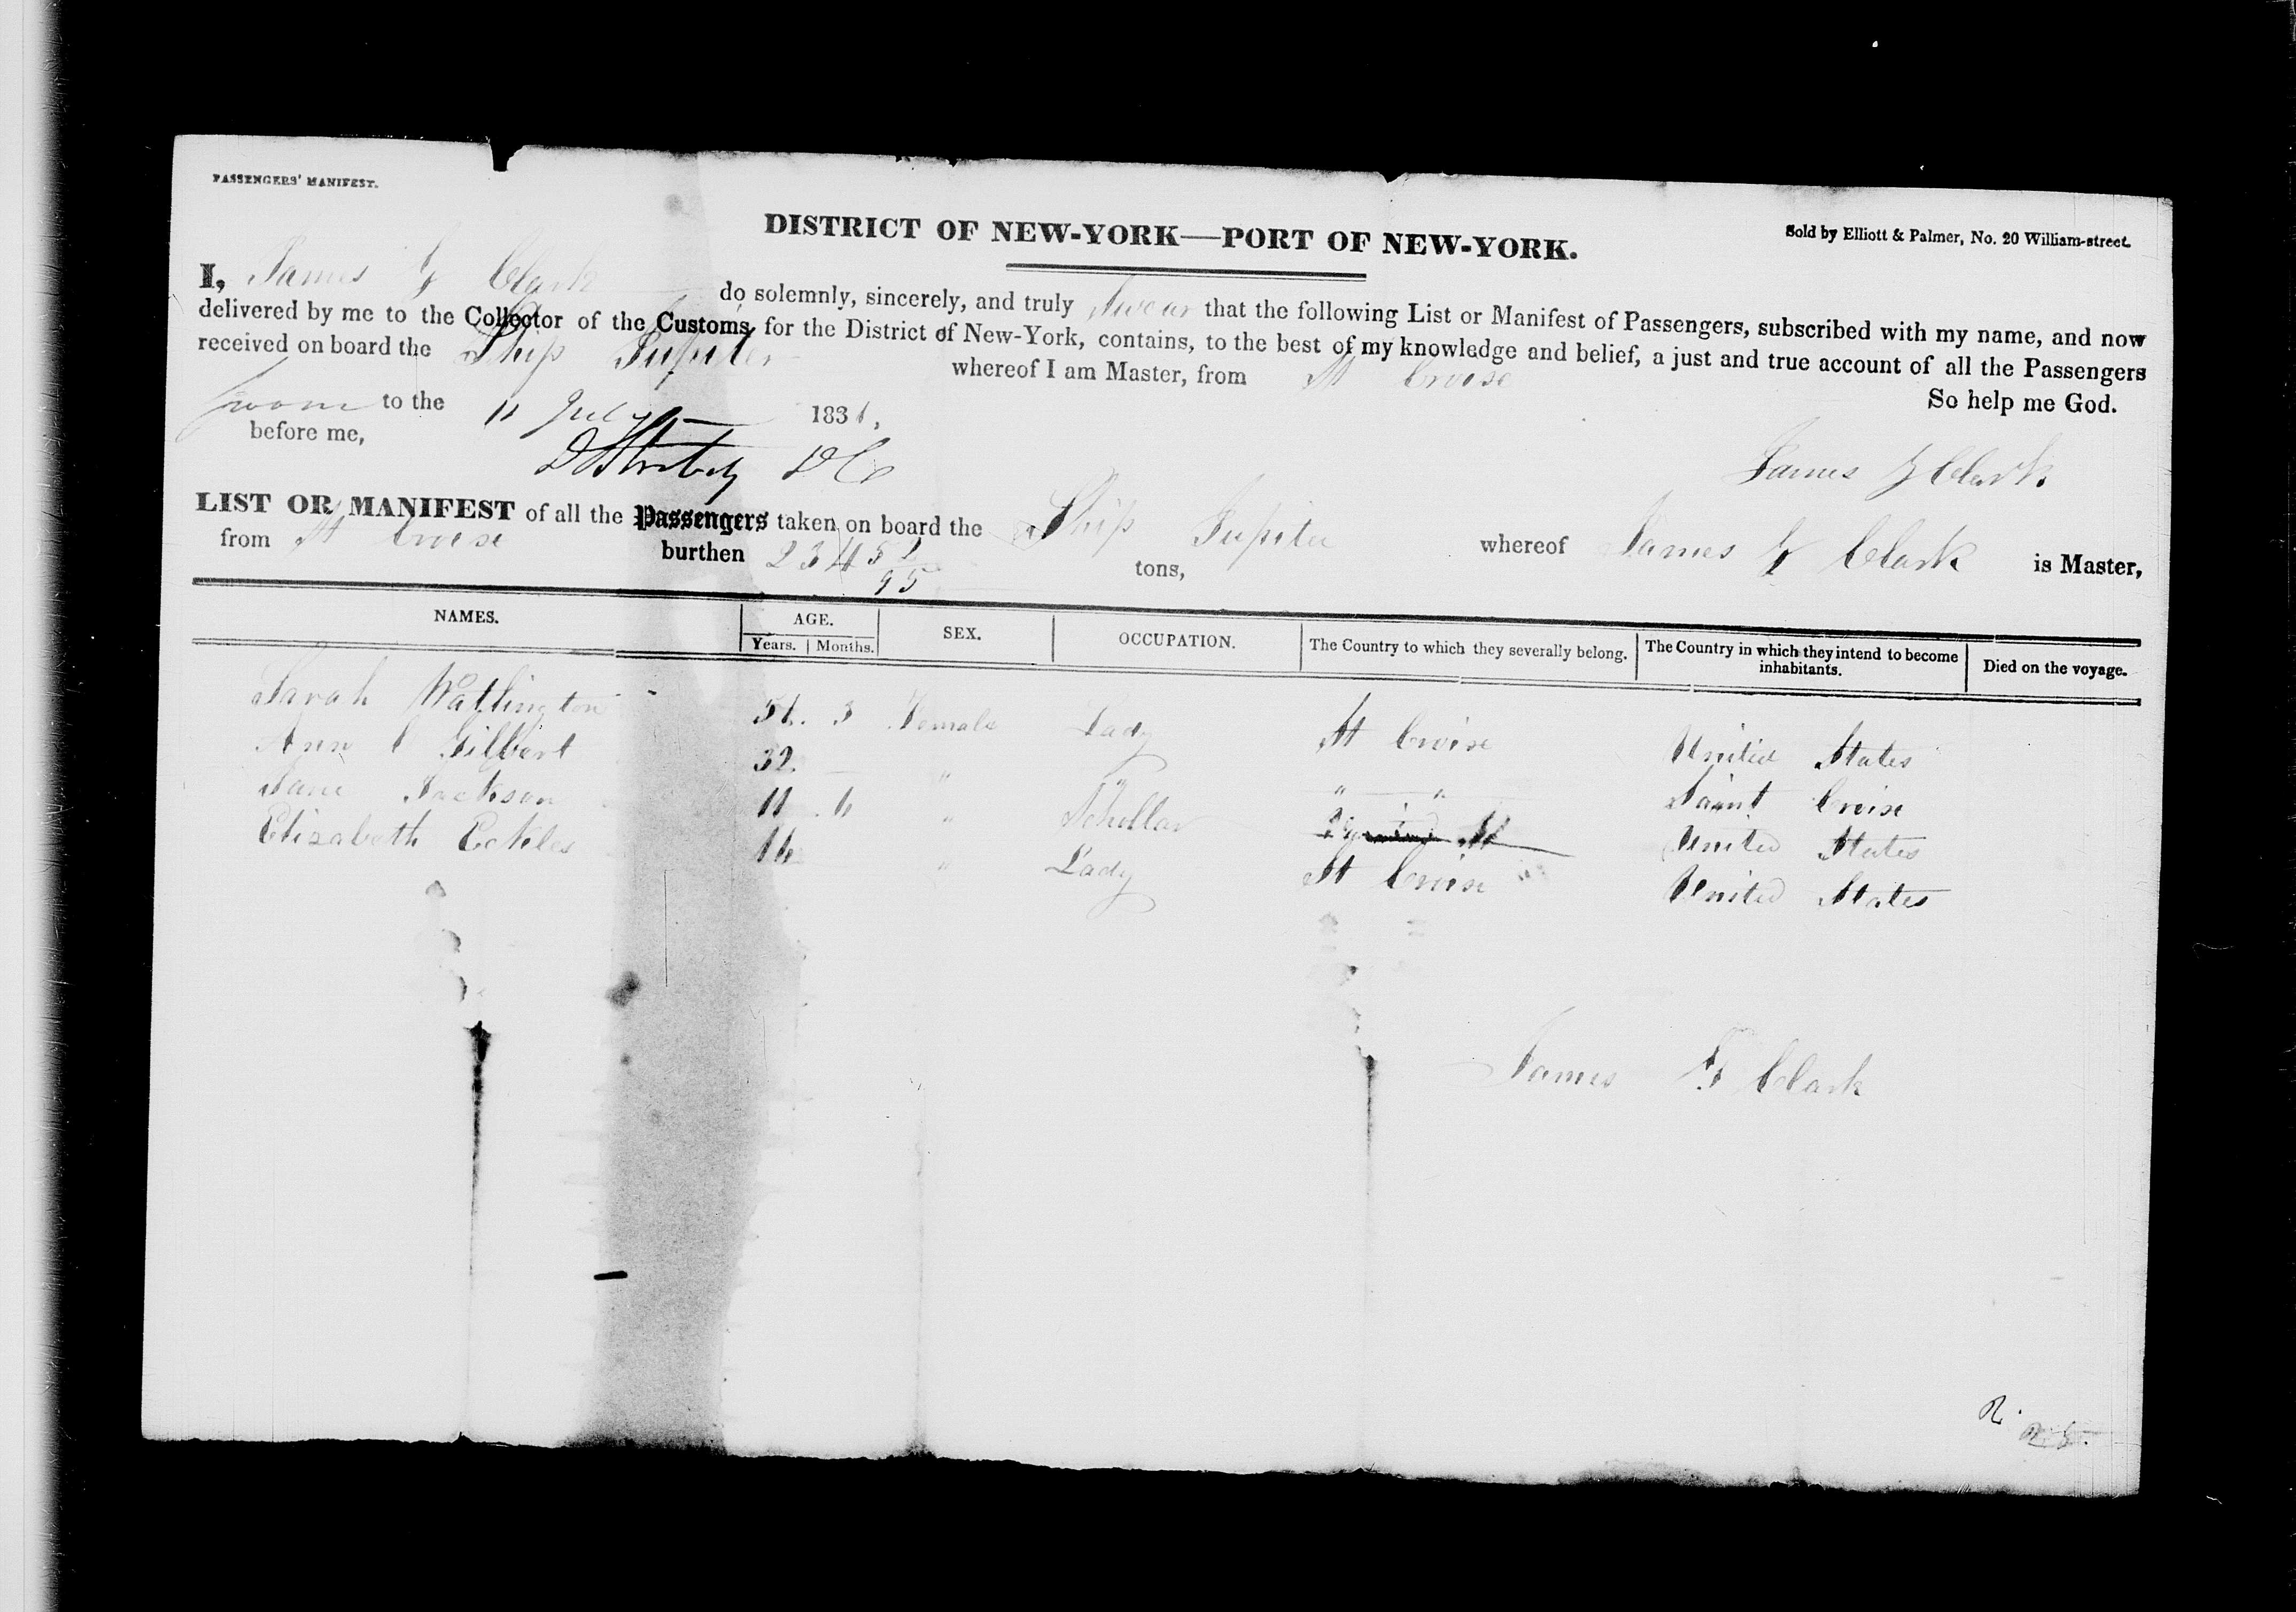 PASSENGERS' MANIFEST.
DISTRICT OF NEW-YORK—PORT OF NEW-YORK.
Sold by Elliott & Palmer, No. 20 William-street.
I, James G Clark do solemnly, sincerely, and truly Swear that the following List or Manifest of Passengers, subscribed with my name, and now
delivered by me to the Collector of the Customs, for the District of New-York, contains, to the best of my knowledge and belief, a just and true account of all the Passengers
received on board the Ship Jupiter whereof I am Master, from St Croise
So help me God.
Sworn to the 11 July 1831,
before me,
DC
James G Clark
LIST OR MANIFEST of all the Passengers taken on board the Ship Jupiter whereof James G Clark is Master,
from St Croise burthen 234 52/95 tons,
NAMES. AGE. SEX. OCCUPATION. The Country to which they severally belong. The Country in which they intend to become inhabitants. Died on the voyage.
Years. Months.
Sarah Watlington 51. 3 Female Lady St Croise United States
Ann C Gilbert 32. — " " " — " Saint Croise
Jane Jackson 11. 6 " Schollar St United States
Elizabeth Eckles 16 " Lady St Croise United States
James G Clark
R.